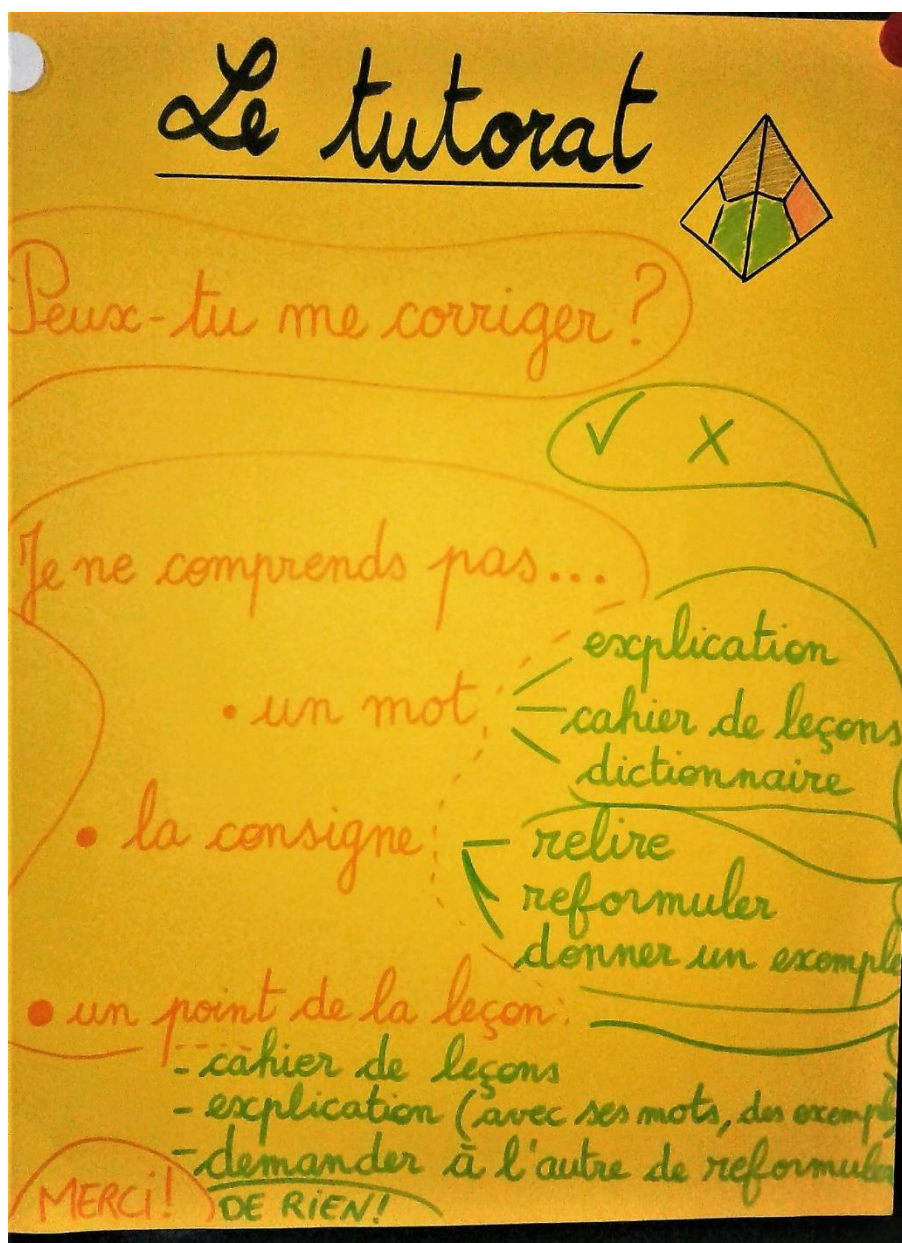 Le tutorat
Peux-tu me corriger ?
✓ X
Je ne comprends pas...
• un mot
explication
cahier de leçons
dictionnaire
• la consigne
relire
reformuler
donner un exemple
• un point de la leçon :
- cahier de leçons
- explication (avec ses mots, des exemple
- demander à l'autre de reformuler
MERCi !
DE RiEN !